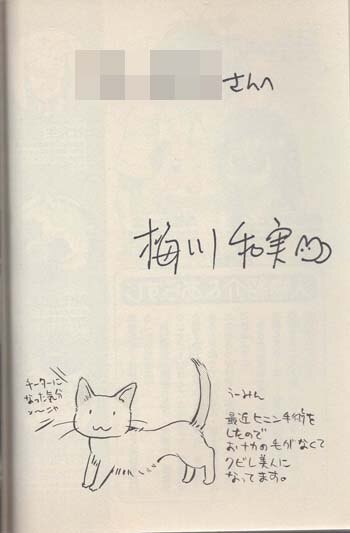 さんへ
梅川和実
チーターに
なった気分
ﾝ〜ニャ
うーみん
最近ヒニン手術を
したので
おナカの毛がなくて
クビレ美人に
なってます。